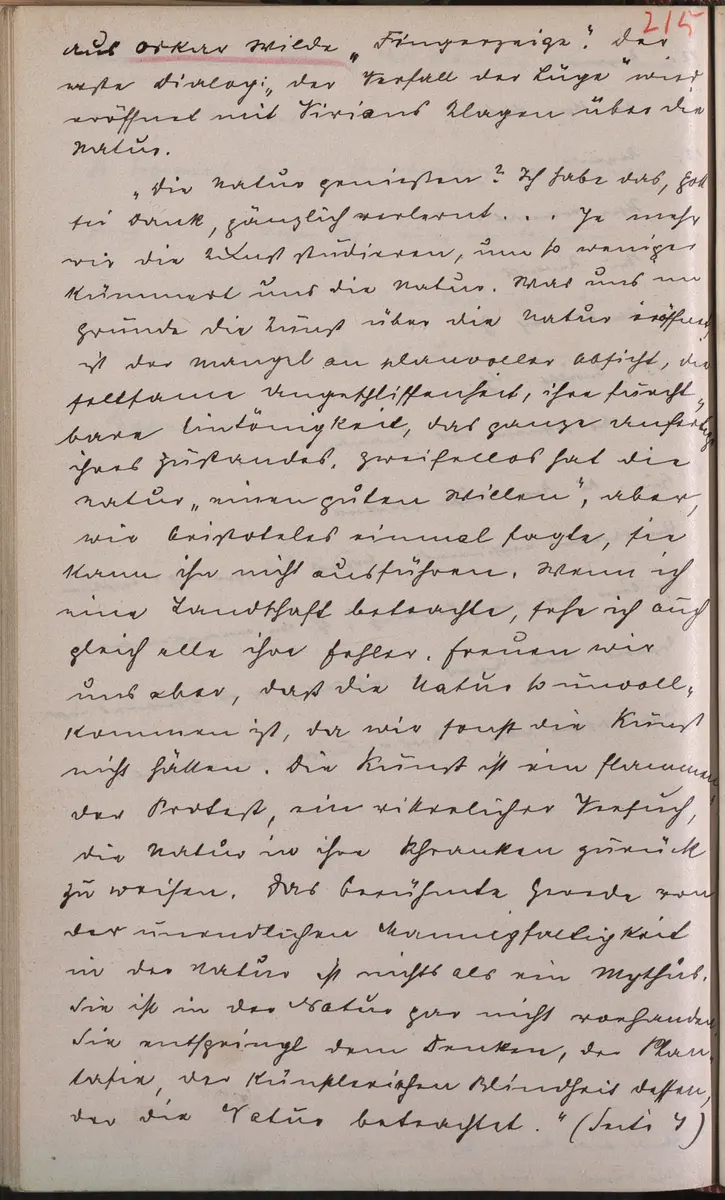 215
aus Oskar Wilde „Fingerzeige". Der
erste Dialog: „der Verfall der Lüge" wird
eröffnet mit Vivians Klagen über die
Natur.
„Die Natur genießen? Ich habe das, Gott
sei Dank, gänzlich verlernt. . . . Je mehr
wir die Kunst studieren, um so weniger
kümmert uns die Natur. Was uns im
Grunde die Kunst über die Natur eröffnet,
ist der Mangel an planvoller Absicht, die
seltsame Ungeschliffenheit, ihre furcht„
bare Eintönigkeit, das ganze Unfertige
ihres Zustandes. Zweifellos hat die
Natur „einen guten Willen", aber,
wie Aristoteles einmal sagte, sie
kann ihn nicht ausführen. Wenn ich
eine Landschaft betrachte, sehe ich auch
gleich alle ihre Fehler. Freuen wir
uns aber, daß die Natur so unvoll„
kommen ist, da wir sonst die Kunst
nicht hätten. Die Kunst ist ein flammen
der Protest, ein ritterlicher Versuch,
die Natur in ihre Schranken zurück
zu weisen. Das berühmte Gerede von
der unendlichen Mannigfaltigkeit
in der Natur ist nichts als ein Mythus.
Sie ist in der Natur gar nicht vorhanden.
Sie entspringt dem Denken, der Phan„
tasie, der künstlerischen Blindheit dessen,
der die Natur betrachtet." (Seite 4)